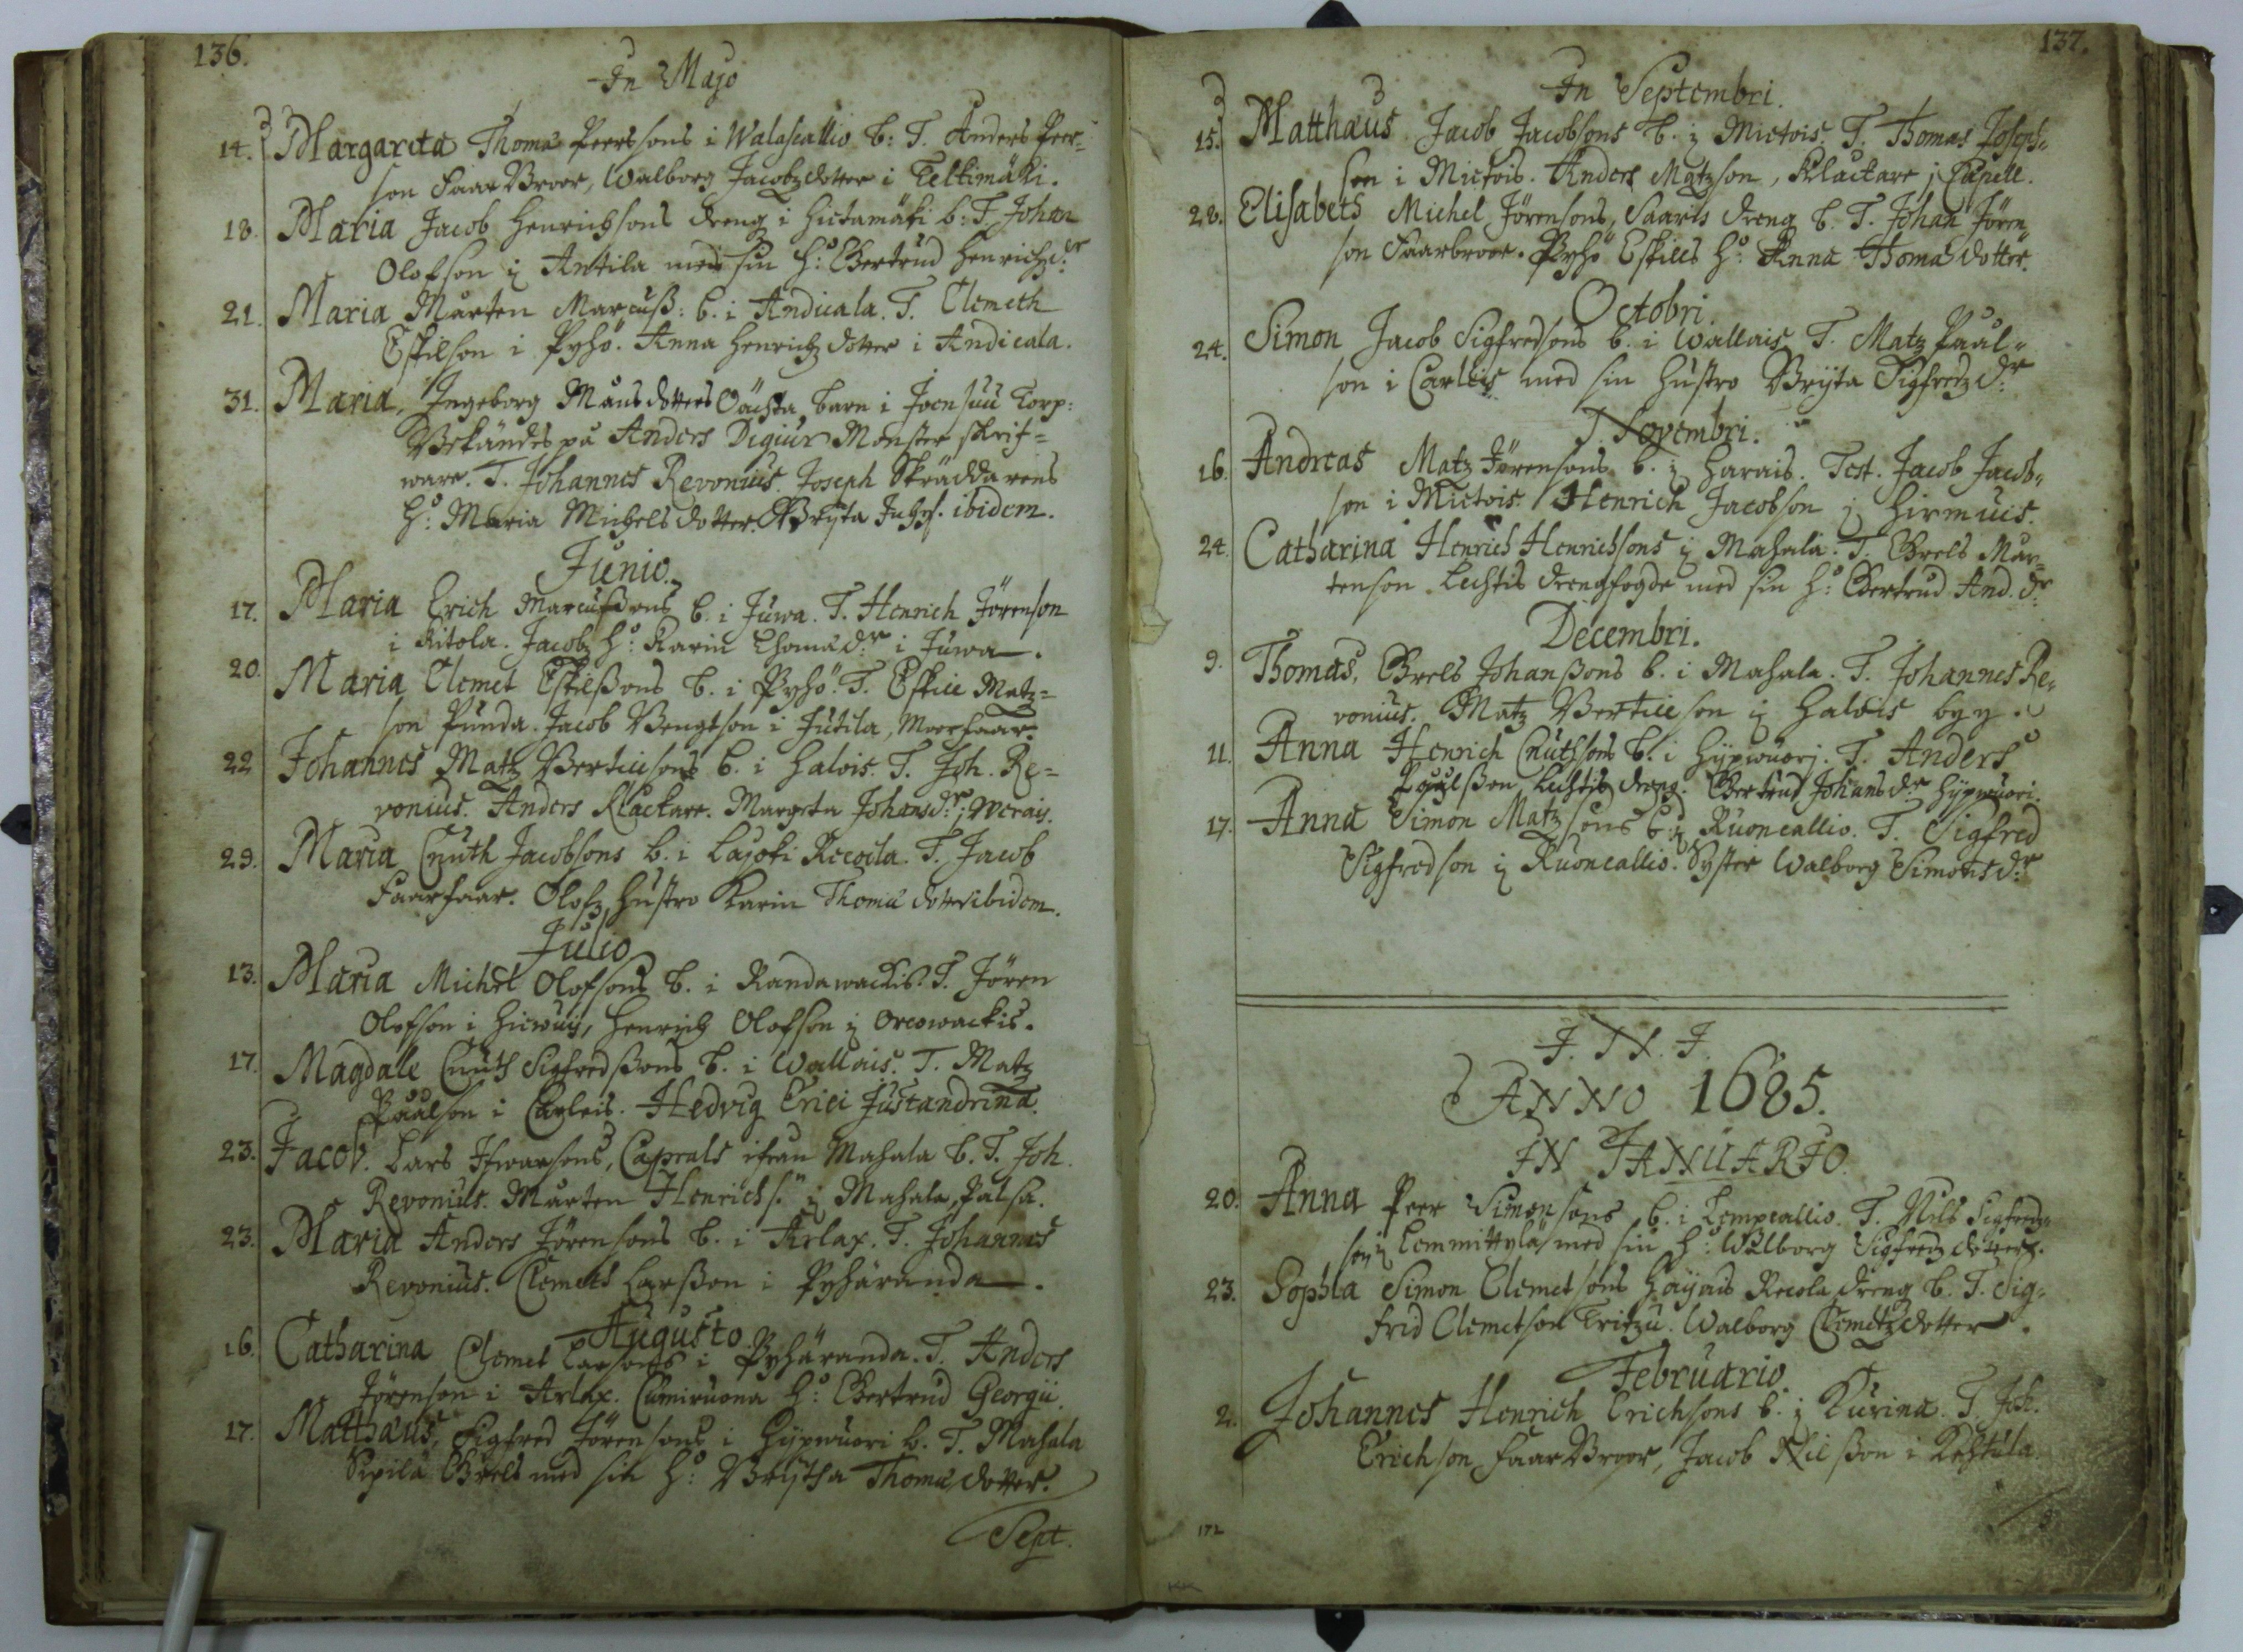 136.
In Majo
14. Margareta Thomas Peerssons i Walascallio b: T. Anders Peer-
son Faar Broor, Walborg Jacobzdotter i Teltimäki.
18. Maria Jacob Henrichsons dreng i Hietamäki b: T. Johan
Olofson i Antila med sin h:o Gertrud Henrichz d:r
21. Maria Mårten Marcuss: b. i Andicala. T. Clemeth
Eskilson i Pyhö. Anna Henrichz dotter i Andicala.
31. Maria, Ingeborg Månsdotters Oächta barn i Joensuu Torp:
Bekändes på Anders Digiur Mönster skrif-
ware. T. Johannes Revonius. Joseph Skräddarens
h:o Maria Michels dotter. Brijta Ing. ibidem.
Junio.
17. Maria Erich Marcussons b. i Juwa. T. Henrich Jörenson
i Kitola. Jacobz h:o Karin Thomæ d:r i Juwa.
20. Maria Clemet Eskilssons b. i Pyhö. T. Eskil Matz-
son Punda. Jacob Bengtson i Jutila, Moorfaar.
22 Johannes Matz Bertilsons b. i Halois. T. Joh. Re-
vonius. Anders Klackare. Margeta Johansd:r i Werais.
29. Maria Cnuth Jacobsons b. i Lajoki Recoila. T. Jacob
Faarfaar. Olofz hustro Karin Thomæ dotter ibidem.
Julio
13. Maria Michel Olofsons b. i Randawackis. T. Jören
Olofson i Hiewuij, Henrich Olofson i Orcowackis.
17. Magdale Cnuth Sigfredssons b. i Wallais. T. Matz
Påålson i Carleis. Hedvig Erici Justandrina.
23. Jacob. Lars Ifwarsons, Caprals ifrån Mahala b. T. Joh.
Revonius. Mårten Henrichs. i Mahala, Palsa.
23. Maria Anders Jörensons b. i Arlax. T. Johannes
Revonius. Clemeth Larsson i Pyhäranda.
Augusto
16. Catharina Clemet Larsons i Pyhäranda. T. Anders
Jörenson i Arlax. Camiruona h:o Gertrud Georgii.
17. Matthæus, Sigfred Jörensons i Hypwuori b. T. Mahala
Sipilä Grels med sin h:o Brijtha Thomæ dotter.
Sept.
137.
In Septembri.
15. Matthæus Jacob Jacobsons b. i Mietois. T. Thomas Joseph-
son i Mietois. Anders Matzson, Klackare i Capell.
28. Elisabeth Michel Jörensons, Saaris dreng b. T. Johan Jören-
son Faarbroor. Pyhö Eskills h:o Anna Thomæ dotter.
Octobri.
24. Simon Jacob Sigfredsons b. i Wallais T. Matz Påål-
son i Carleis med sin hustro Brijta Sigfredz d:r
Novembri.
16. Andreas Matz Jörensons b. i Harais. Test. Jacob Jacob-
son i Mietois. Henrich Jacobson i Hirmuis.
24. Catharina Henrich Henrichsons i Mahala. T. Grels Mår-
tenson Lechtis drengfogde med sin h:o Gertrud And. d:r
Decembri.
9. Thomas, Grels Johanssons b. i Mahala. T. Johannes Re-
vonius. Matz Bertilson i Halois by.
11. Anna Henrich Cnuthsons b. i Hypwuorj. T. Anders
Påålsson Lechtis dreng. Gertrud Johans d:r Hypwuori.
17. Anna Simon Matzsons b. i Ruoncallio. T. Sigfred
Sigfredson i Ruoncallio. Syster Walborg Simonsd:r
J. N. J.
ANNO 1685.
IN JANUARIO.
20. Anna Peer Simonsons b. i Lempcallio. T. Nils Sigfredz-
son i Lemmittylä med sin h:o Walborg Sigfredz dotter.
23. Sophia Simon Clemetsons Haijais Recola dreng b. T. Sig-
frid Clemetson Kritzu. Walborg Clemetz dotter.
Februario.
2. Johannes Henrich Erichsons b. i Kurina. T. Joh.
Erichson Faar Broor, Jacob Nilsson i Kestula.
172
KK